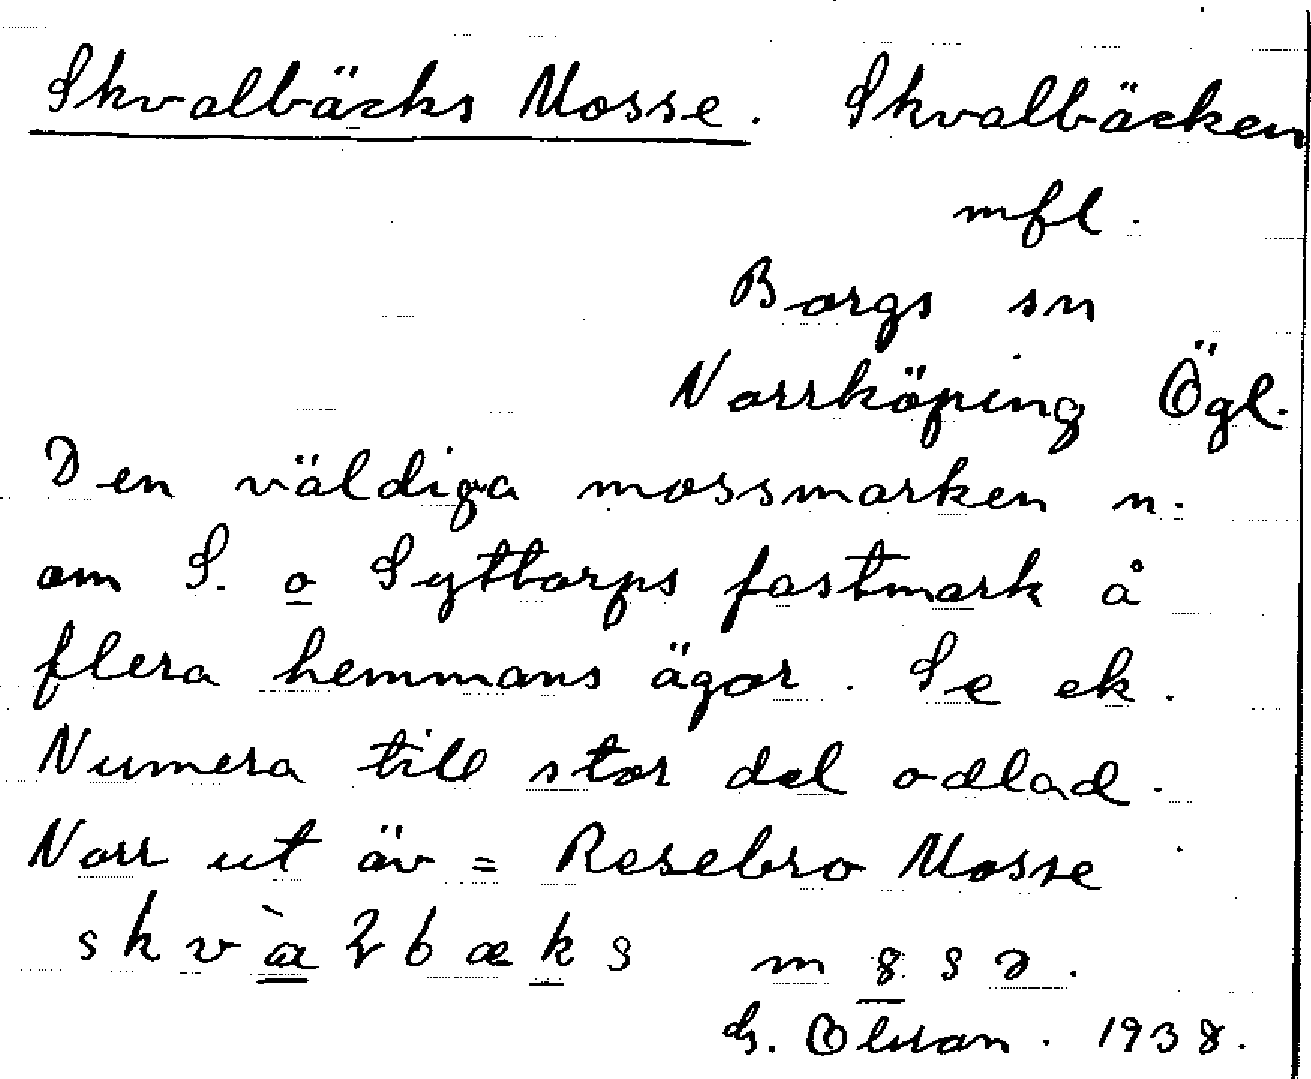 Skvalbäcks Mosse. Skvalbäcken
mfl.
Borgs sn
Norrköping Ögl.
Den väldiga mossmarken n.
om S. o Syttorps fastmark å
flera hemmans ägor. Se ek.
Numera till stor del odlad.
Norr ut äv = Resebro Mosse
skvàɫbæks m8sə.
G. Olson. 1938.